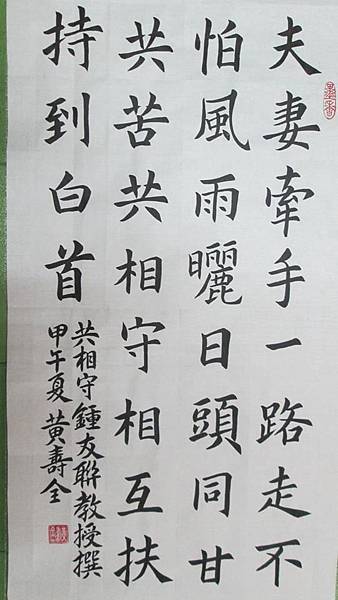 夫妻牽手一路走不
怕風雨曬日頭同甘
共苦共相守相互扶
持到白首
共相守鍾友聯教授撰
甲午夏黃壽全
墨香